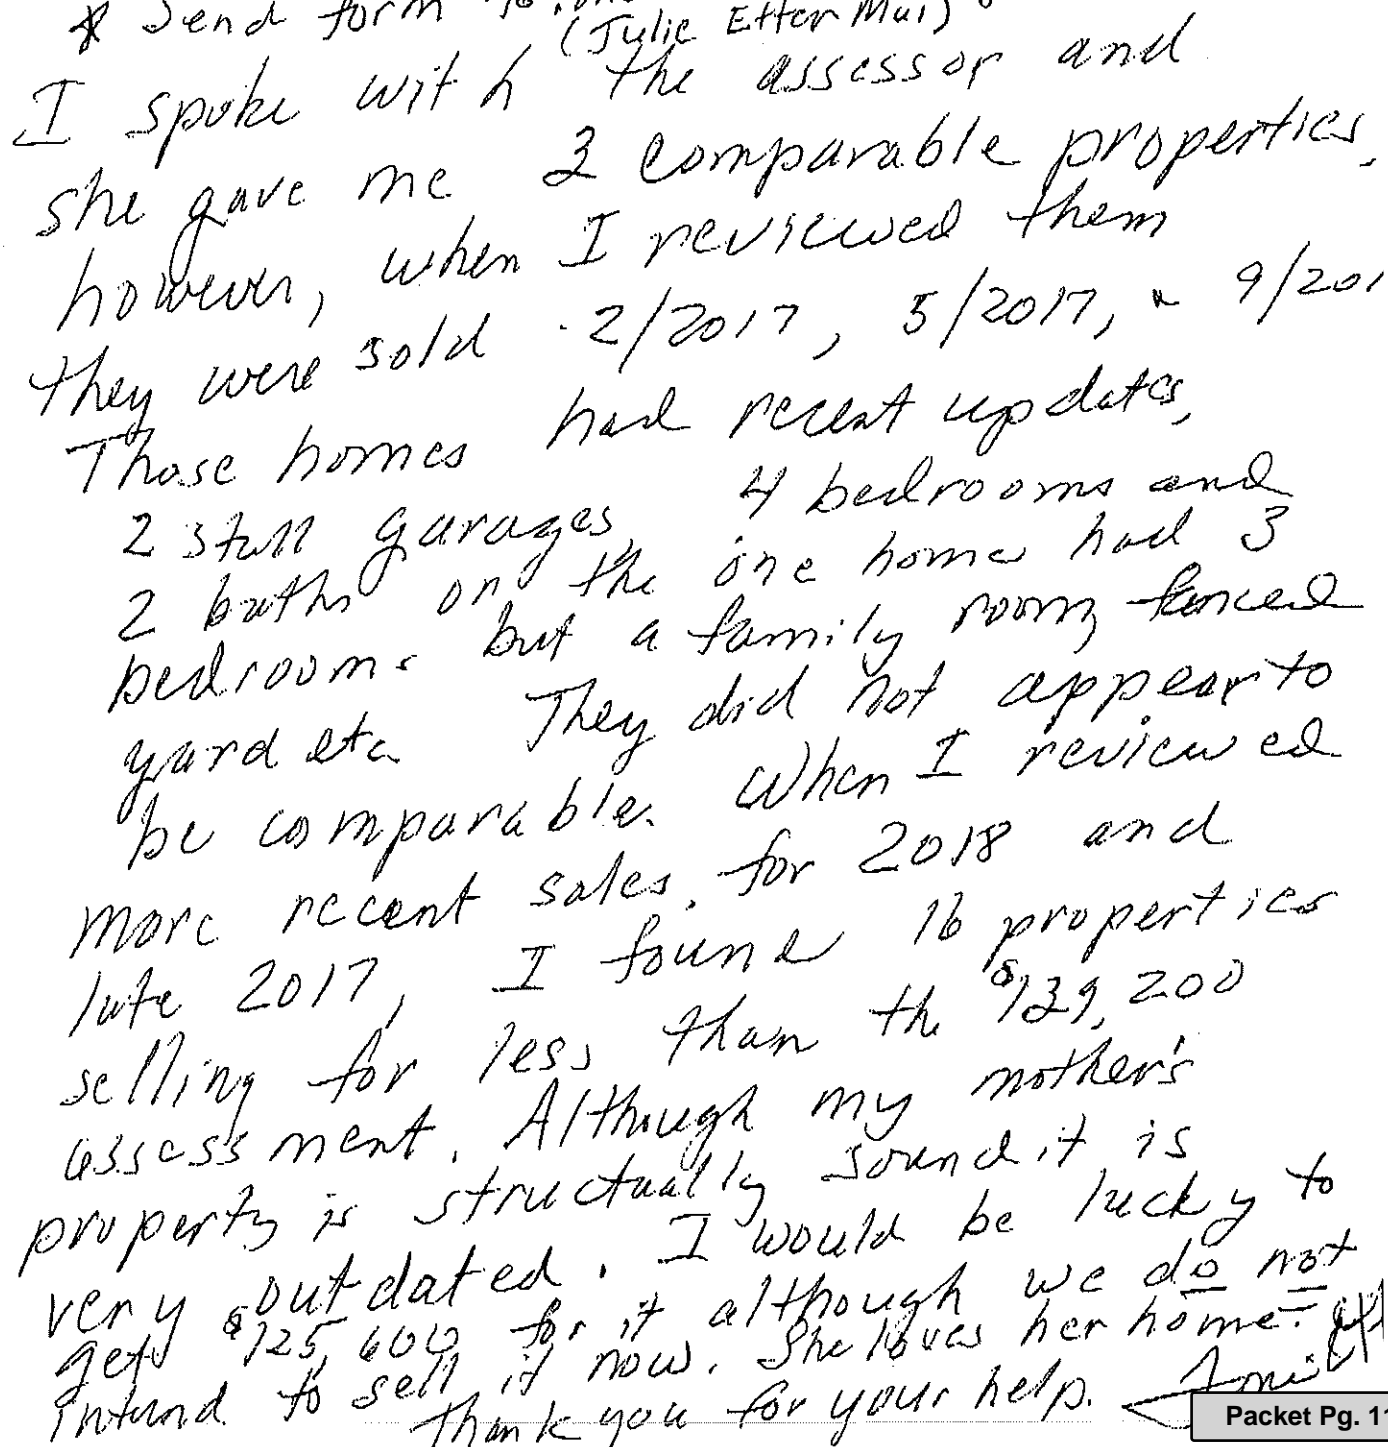 * Send form to
(Julie Etter Mui)
I spoke with the assessor and
she gave me 3 comparable properties,
however, when I reviewed them
they were sold 2/2017, 5/2017, & 9/201
Those homes had recent updates,
2 stall garages, 4 bedrooms and
2 baths or the one home had 3
bedrooms but a family room, fenced
yard etc. They did not appear to
be comparable. When I reviewed
more recent sales, for 2018 and
late 2017, I found 16 properties
selling for less than the $139,200
assessment. Although my mother's
property is structually sound it is
very outdated. I would be lucky to
get $125,600 for it although we do not
intend to sell it now. She loves her home.
Thank you for your help.
Packet Pg. 11